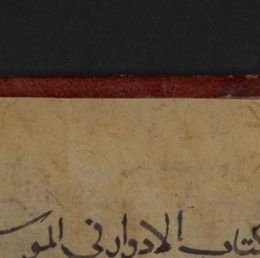 كتاب الادوار في المو